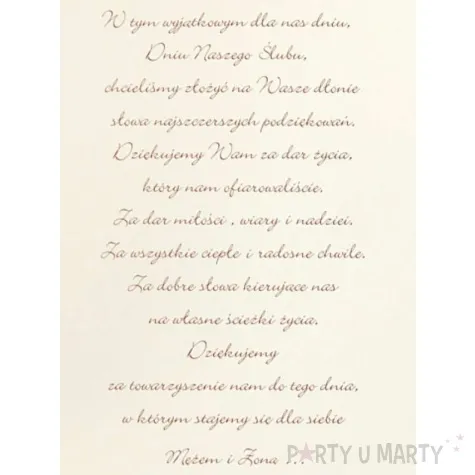 W tym wyjątkowym dla nas dniu,
Dniu Naszego Ślubu,
chcieliśmy złożyć na Wasze dłonie
słowa najszczerszych podziękowań.
Dziękujemy Wam za dar życia,
który nam ofiarowaliście.
Za dar miłości , wiary i nadziei.
Za wszystkie ciepłe i radosne chwile.
Za dobre słowa kierujące nas
na własne ścieżki życia.
Dziękujemy
za towarzyszenie nam do tego dnia,
w którym stajemy się dla siebie
Mężem i Żona . . .
PARTY U MARTY